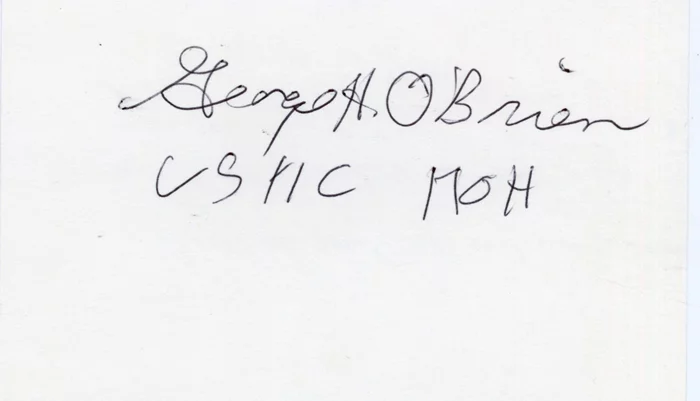 George H. O'Brien
USMC MOH